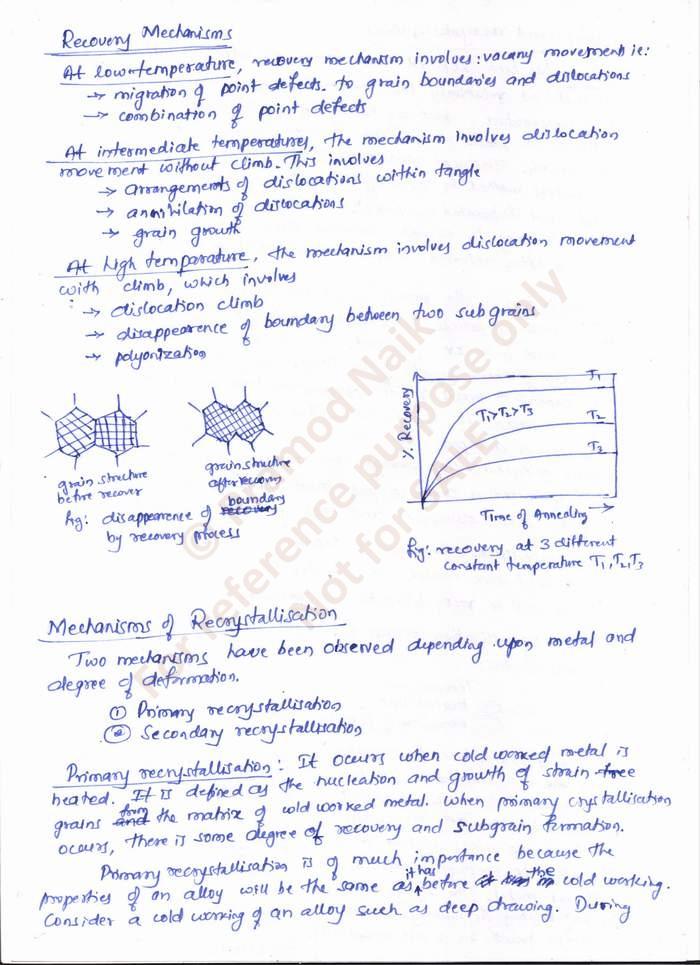 Recovery Mechanisms
At low temperature, recovery mechanism involves: vacany movement ie:
→ migration of point defects to grain boundaries and dislocations
→ combination of point defects
At intermediate temperatures, the mechanism involves dislocation
movement without climb. This involves
→ arrangements of dislocations within tangle
→ annihilation of dislocations
→ grain growth
At high temparature, the mechanism involves dislocation movement
with climb, which involves
→ dislocation climb
→ disappearence of boundary between two sub grains
→ polyonization
grain structure
before recover
grain structure
after recovery
fig: disappearence of boundary
by recovery process
% Recovery
T1>T2>T3
T1
T2
T3
Time of Annealing →
fig: recovery at 3 different
constant temperature T1, T2, T3
Mechanisms of Recrystallisation
Two mechanisms have been observed depending upon metal and
degree of deformation.
① Primary recrystallisation
② Secondary recrystallisation
Primary recrystallisation: It occurs when cold worked metal is
heated. It is defined as the nucleation and growth of strain free
grains from the matrix of cold worked metal. When primary crystallisation
occurs, there is some degree of recovery and subgrain formation.
Primary recrystallisation is of much importance because the
properties of an alloy will be the same as it has before the cold working.
Consider a cold working of an alloy such as deep drawing. During
© Pramod Naik
For reference purpose only
Not for SALE